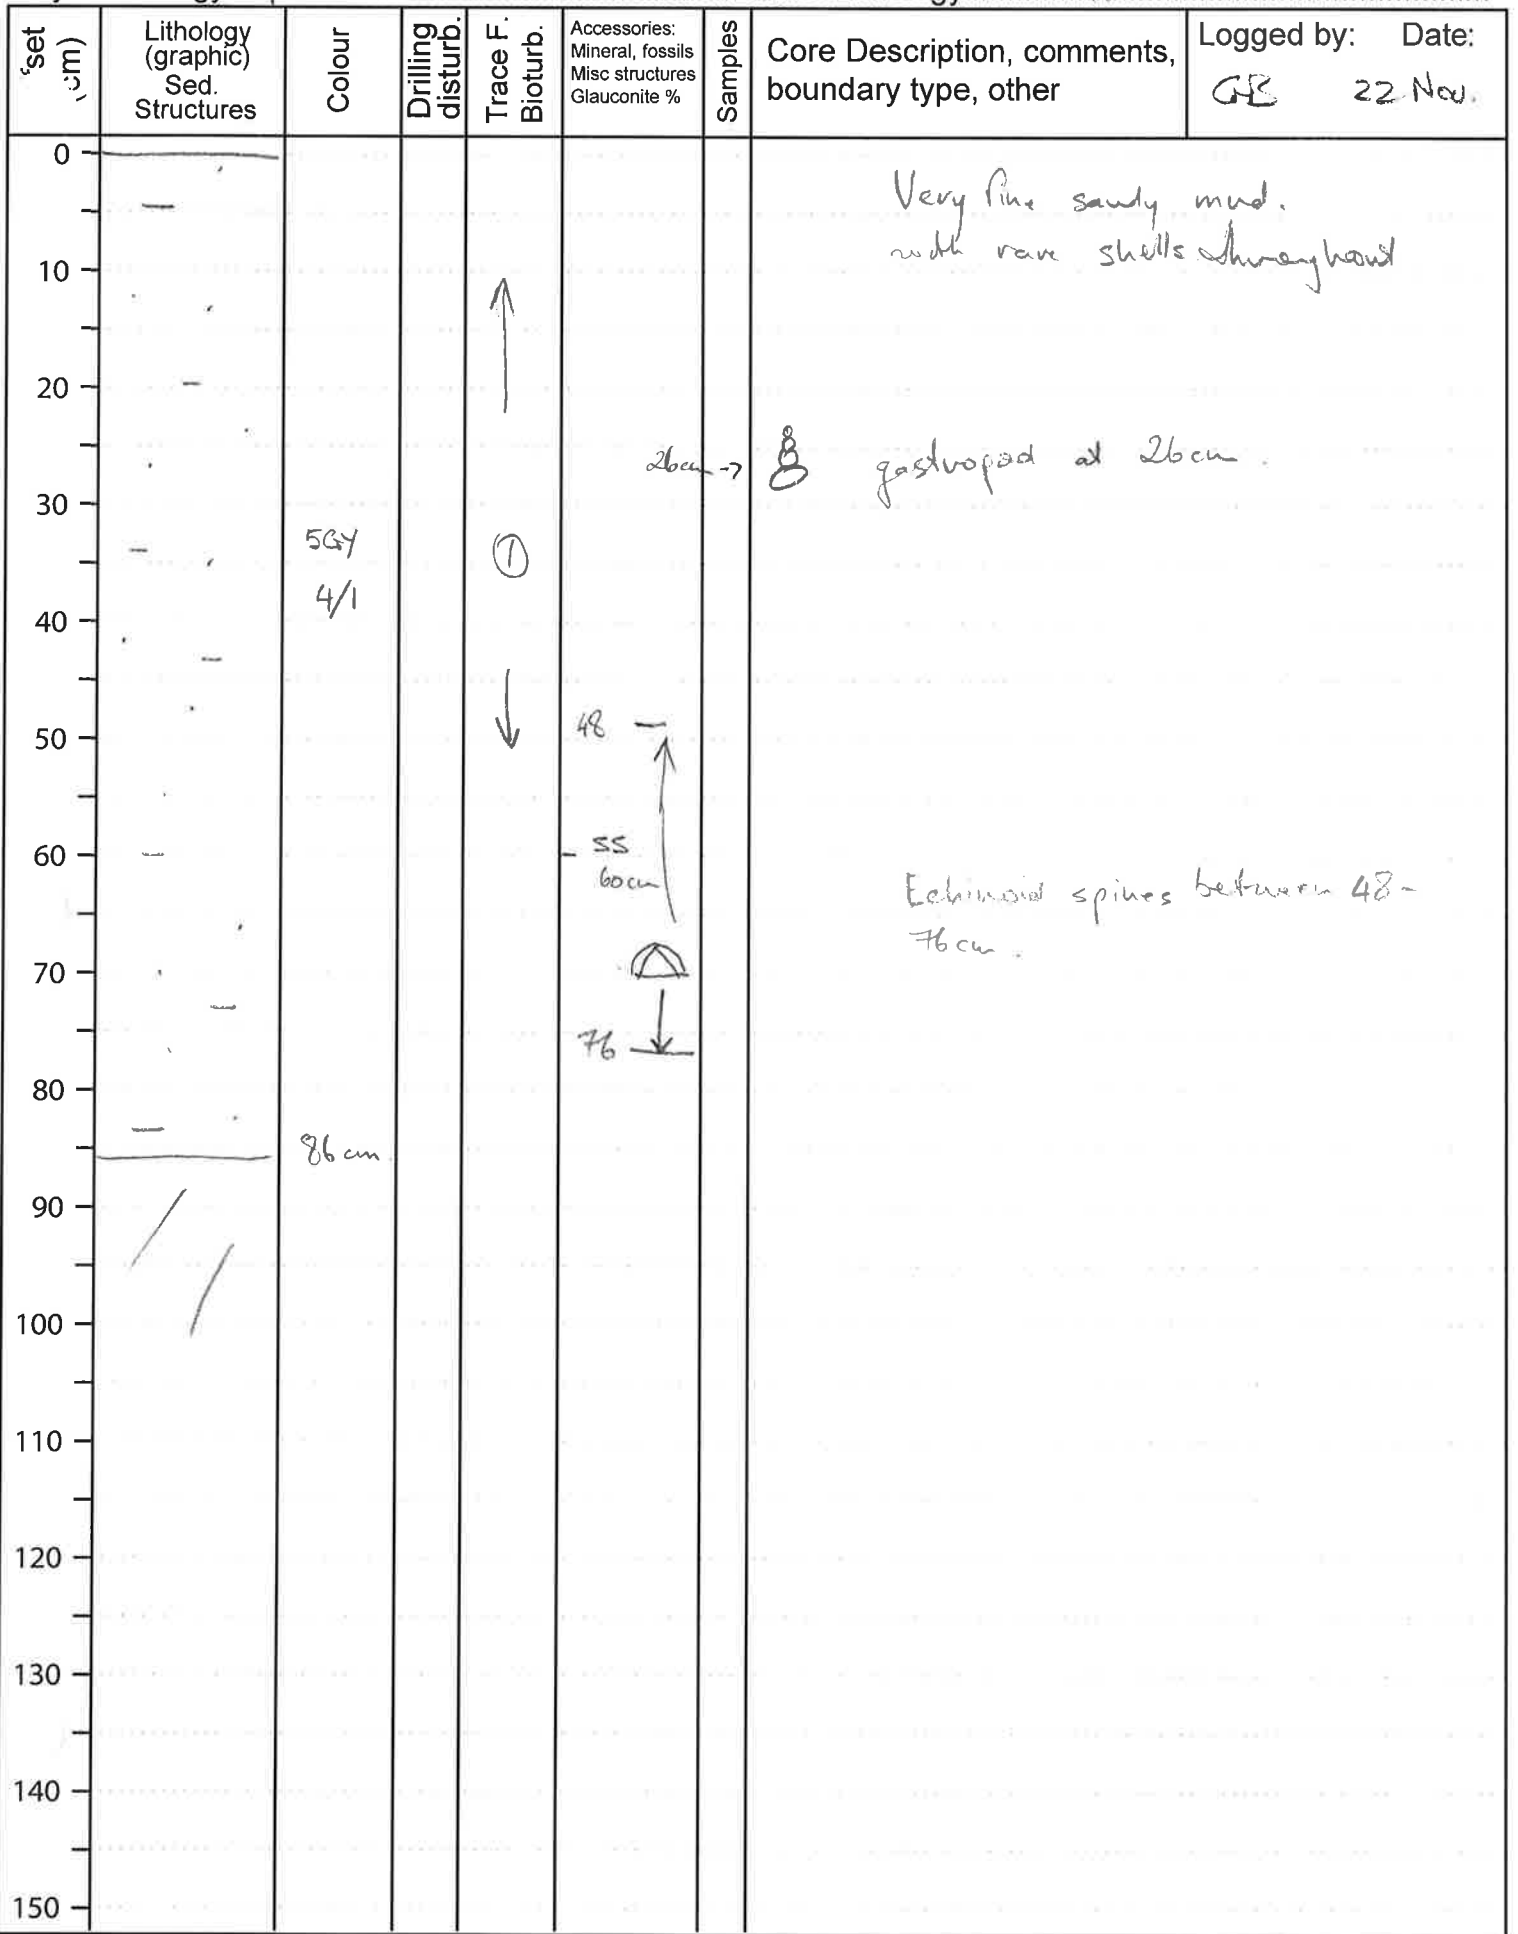 Lithology
(graphic)
Sed.
Structures
Colour
Drilling
disturb.
Trace F.
Bioturb.
Accessories:
Mineral, fossils
Misc structures
Glauconite %
Samples
Core Description, comments,
boundary type, other
Logged by: Date:
GB 22 Nov.
0
10
20
30
40
50
60
70
80
90
100
110
120
130
140
150
Very fine sandy mud.
with rare shells throughout
26cm → gastropod at 26cm.
5GY
4/1
1
48
SS
60cm
Echinoid spines between 48-
76cm.
76
86cm.